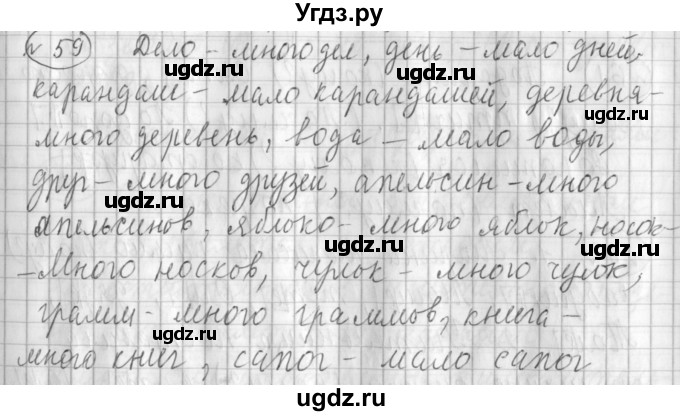 Угдз.ру
№ 59 Дело - много дел, день - мало дней,
карандаш - мало карандашей, деревня -
много деревень, вода - мало воды,
друг - много друзей, апельсин - много
апельсинов, яблоко - много яблок, носок -
- много носков, чулок - много чулок,
грамм - много граммов, книга -
много книг, сапог - мало сапог
ugdz.ru ugdz.ru
ugdz.ru ugdz.ru
ugdz.ru
ugdz.ru ugdz.ru
ugdz.ru
ugdz.ru ugdz.ru
ugdz.ru
ugdz.ru ugdz.ru